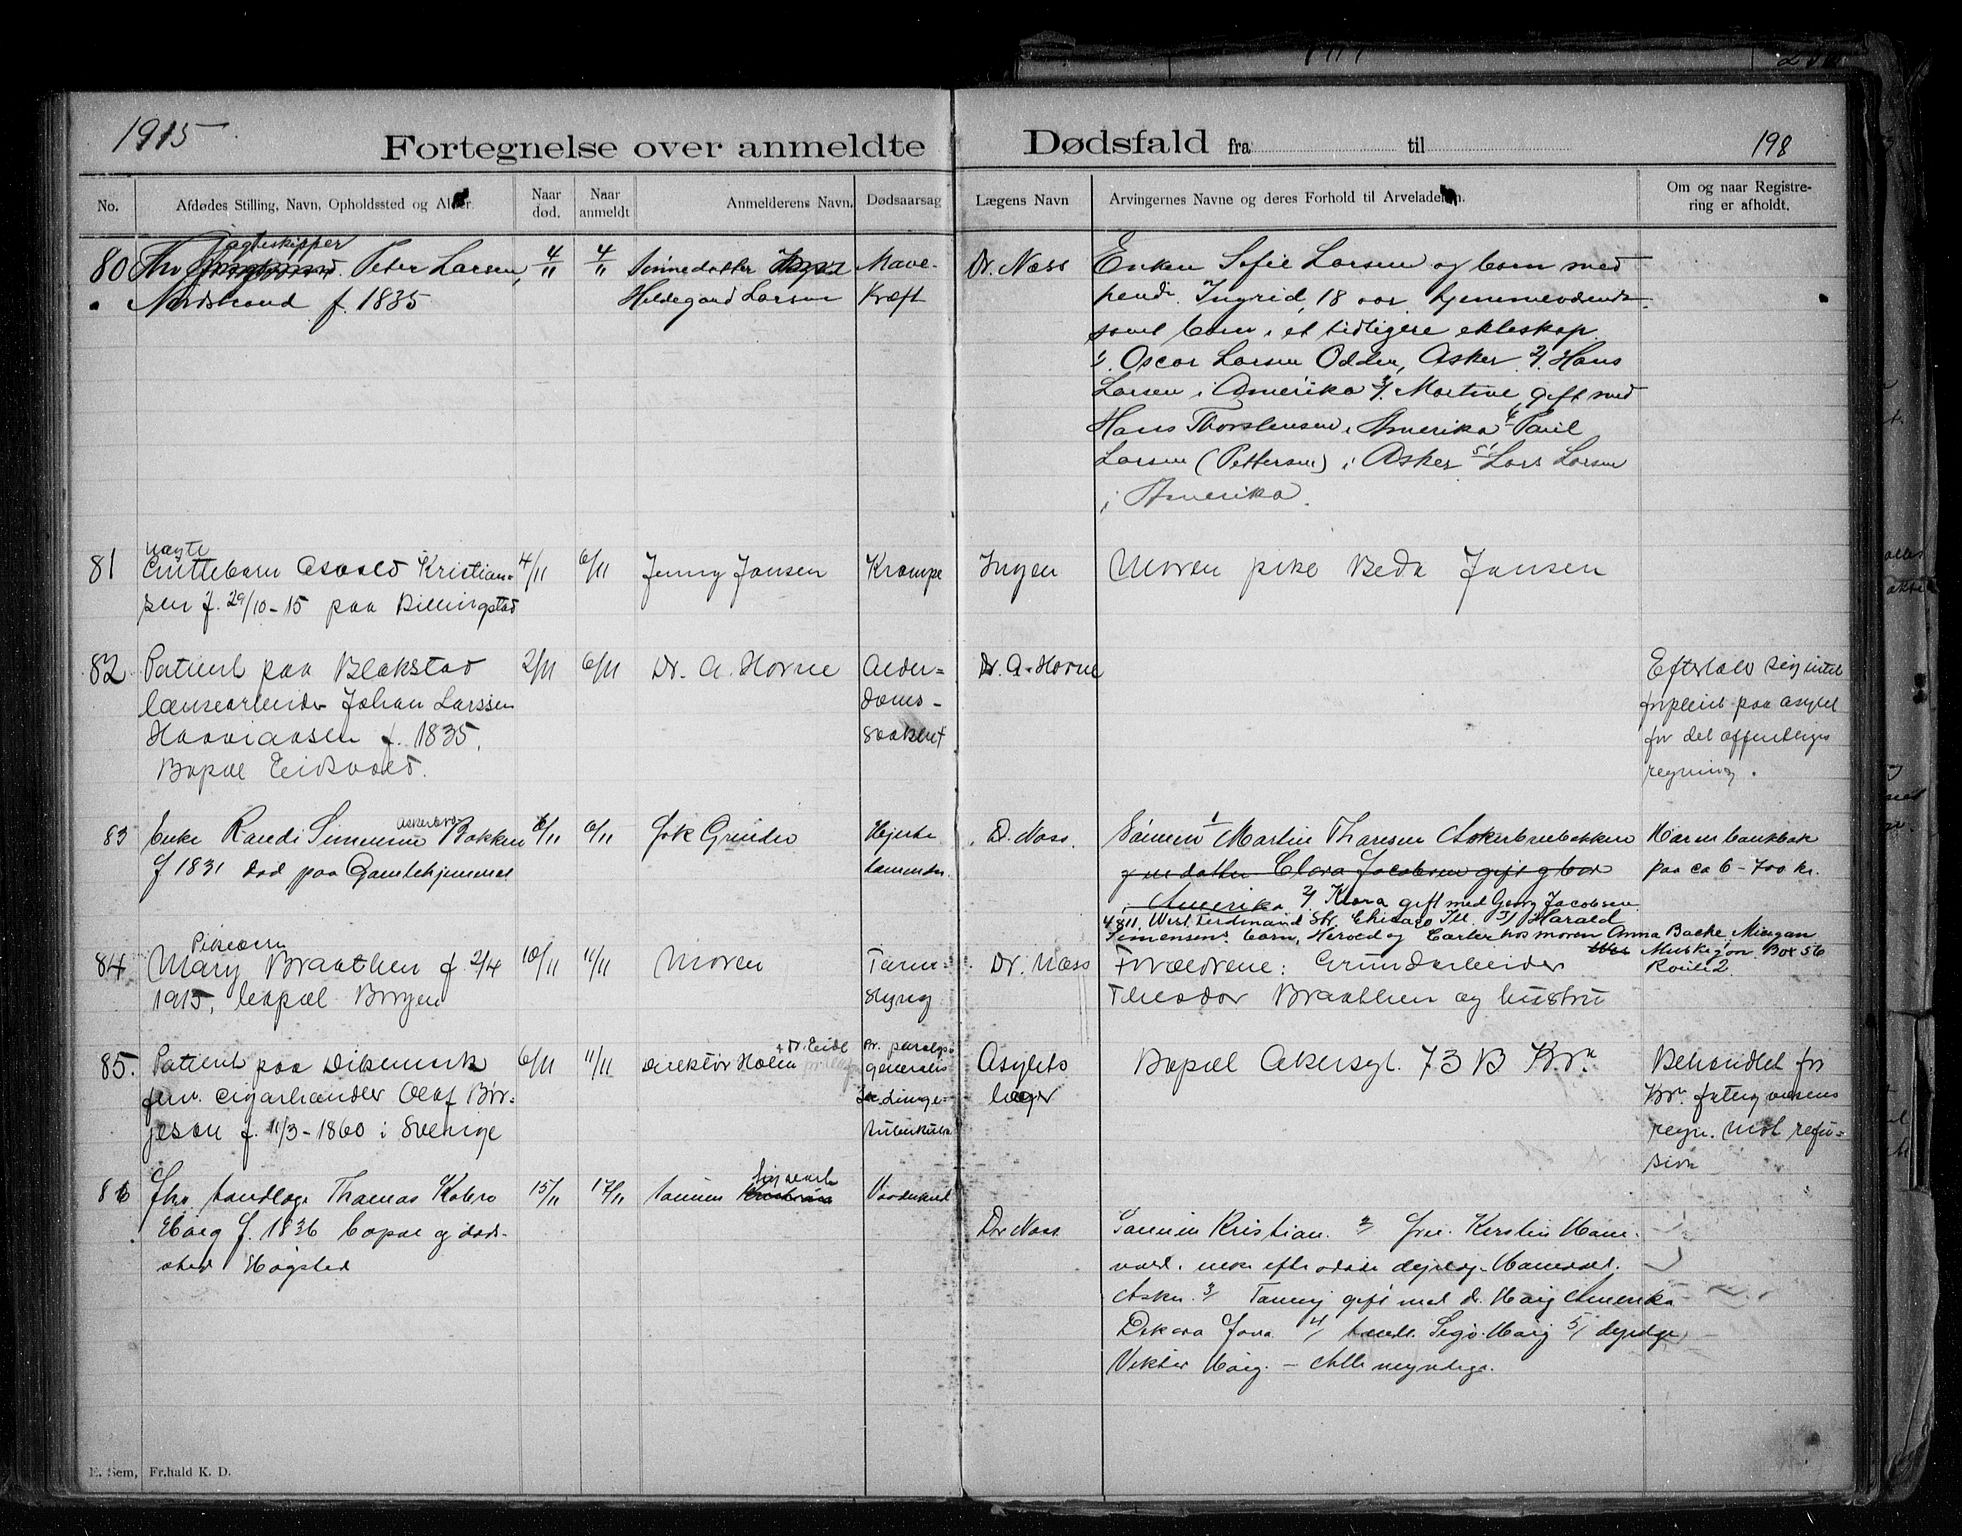 1915
Fortegnelse over anmeldte Dødsfald fra til
198
No.
Afdødes Stilling, Navn, Opholdssted og Alder.
Naar død.
Naar anmeldt
Anmelderens Navn.
Dødsaarsag
Lægens Navn
Arvingernes Navne og deres Forhold til Arveladeren.
Om og naar Registrering er afholdt.
80 Fhv jagteskipper Peter Larsen,
Nordstrand f. 1835
4/11
4/11
Sønnedatter
Hildegard Larsen
Mave-
kræft
Dr. Næss
Enken Sofie Larsen og barn med
hende. Ingrid, 18 aar, hjemmeværende
samt barn i et tidligere ekteskap
1/. Oscar Larsen Odden, Asker 2/. Hans
Larsen i Amerika 3/ Martine, gift med
Hans Thorstensen i Amerika 4 Paul
Larsen (Pettersen) i Asker 5/ Lars Larsen
i Amerika.
81
uægte
Guttebarn Asvald Kristian-
sen f. 29/10-15 paa Billingstad
4/11
6/11
Jenny Jansen
Krampe
Ingen
Moren pike Beda Jansen
82
Patient paa Blakstad
lænsearbeider Johan Larssen
f. 1835.
Bopæl Eidsvold.
2/11
6/11
Dr. A. Horne
Alder-
doms-
svakhet
Dr. A. Horne
Efterlod sig intet
forpleiet paa asylet
for det offentliges
regning.
83 Enke Randi Simensen Bakken
f 1831 død paa Gamlehjemmet
6/11
6/11
Hjerte
Dr. Næss.
Sønnen 1 Martin
og en datter Clara Jacobsen gift og bor
i Amerika 2/ Klara gift med Georg Jacobsen
4811. West Ferdinand Str. Chicago Ill. 3/ Harald
Simensens barn, Herold og hos moren Anna Backe,
Muskegon. Box 56
Route 2.
Har en bankbok
paa ca 6-700 kr.
84
Pikebarn
Mary Braathen f. 2/4
1915, bopæl Borgen
10/11
11/11
Moren
Tarm-
slyng
Dr. Næss
Forældrene: Grundarbeider
Theodor Braathen og hustru
85. Patient paa Dikemark
fhv. cigarhandler Olaf Bør-
jeson f. 11/3-1860 i Sverige
6/11
11/11
Direktør Holm
+ Dr. Eide
generalis
Lunge-
tuberkulose
Asylets
læger
Bopæl Akersgt. 73 B Kra.
Behandlet for
Kra. fattigvæsens
regn. mot refu-
sion
86 Fhv landhdl. Thomas
Haig f. 1836 bopæl og døds-
sted Høgsted
15/11
17/11
Sønnen
Dr Næss.
Sønnen Kristian. 2/ Fru. Kirstin
Asker. 3/ gift med d. Haig Amerika
4/ Haig 5/
Viktor Haig. – Alle myndige.
E. Sem, Fr.hald K. D.